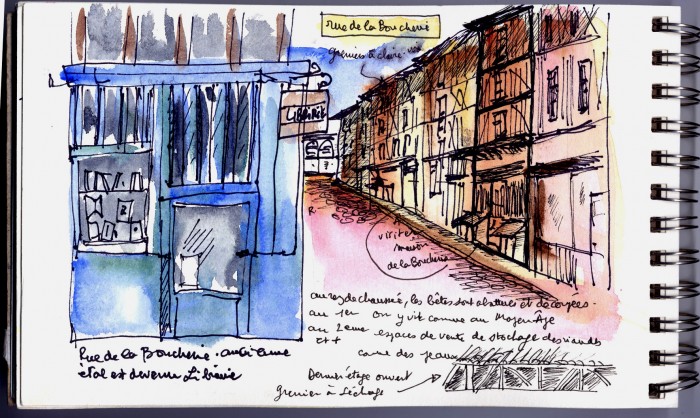 rue de la Boucherie
Greniers à claire-voie
LIBRAIRIE
visiter
maison
de la Boucherie
au rez de chaussée, les bêtes sont abattues et découpées.
au 1er on y vit comme au Moyen Âge
au 2eme espaces de vente de stockage des viandes
et +
des peaux
Rue de la Boucherie. ancienne
étal est devenu Librairie
Dernier étage ouvert
Grenier à séchage